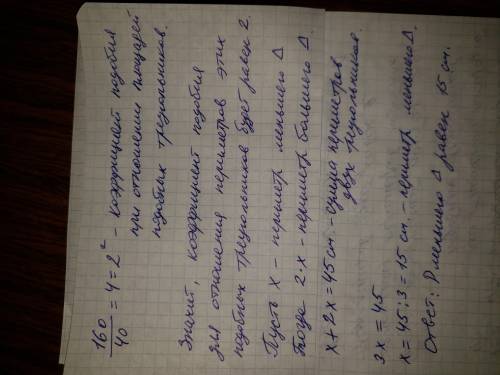 160/40 = 4 = 2² - коэффициент подобия
при отношении площадей
подобных треугольников.
Значит, коэффициент подобия
для отношения периметров этих
подобных треугольников будет равен 2.
Пусть x - периметр меньшего Δ
Тогда 2·x - периметр большего Δ.
x + 2x = 45 см - сумма периметров
двух треугольников.
3x = 45
x = 45 : 3 = 15 см. - периметр меньшего Δ.
Ответ: P меньшего Δ равен 15 см.